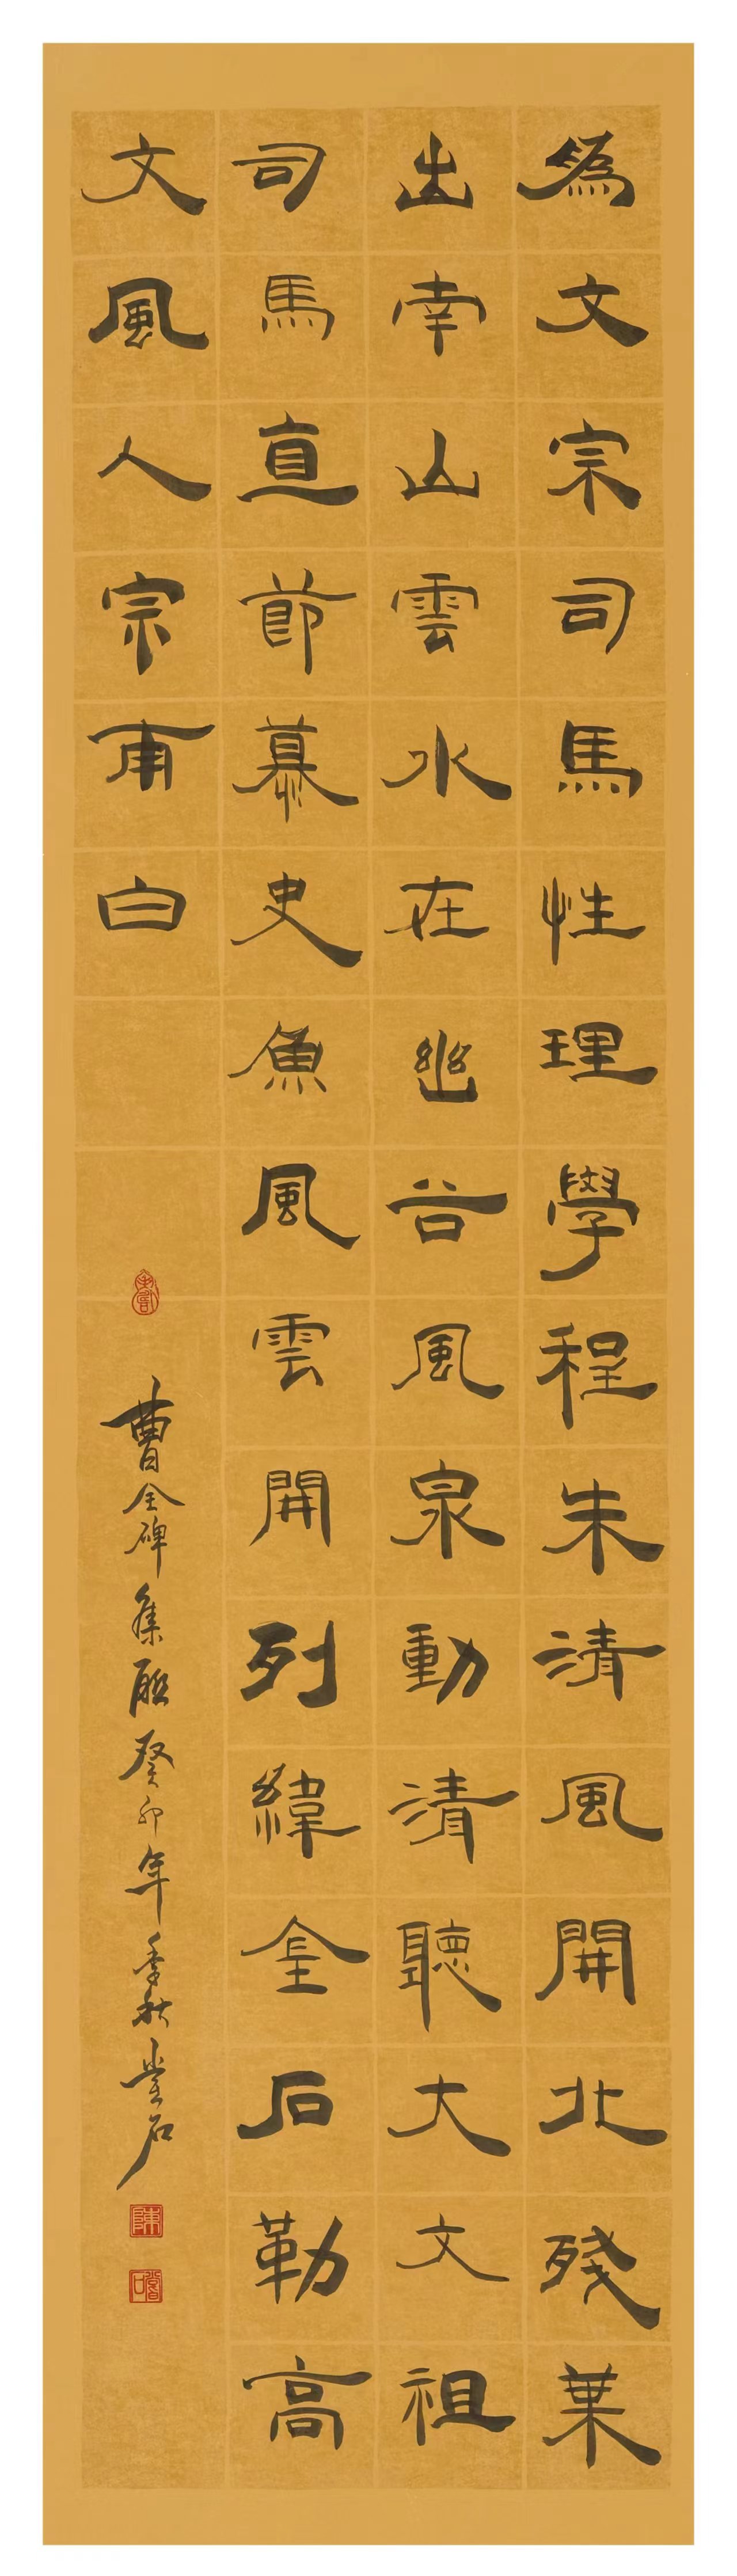 爲文宗司馬性理學程朱清風開北殘葉
出南山雲水在幽谷風泉動清聽大文祖
司馬直節慕史魚風雲開列緯金石勒高
文風人宗甫白
曹全碑集聯癸卯年季秋石
陳